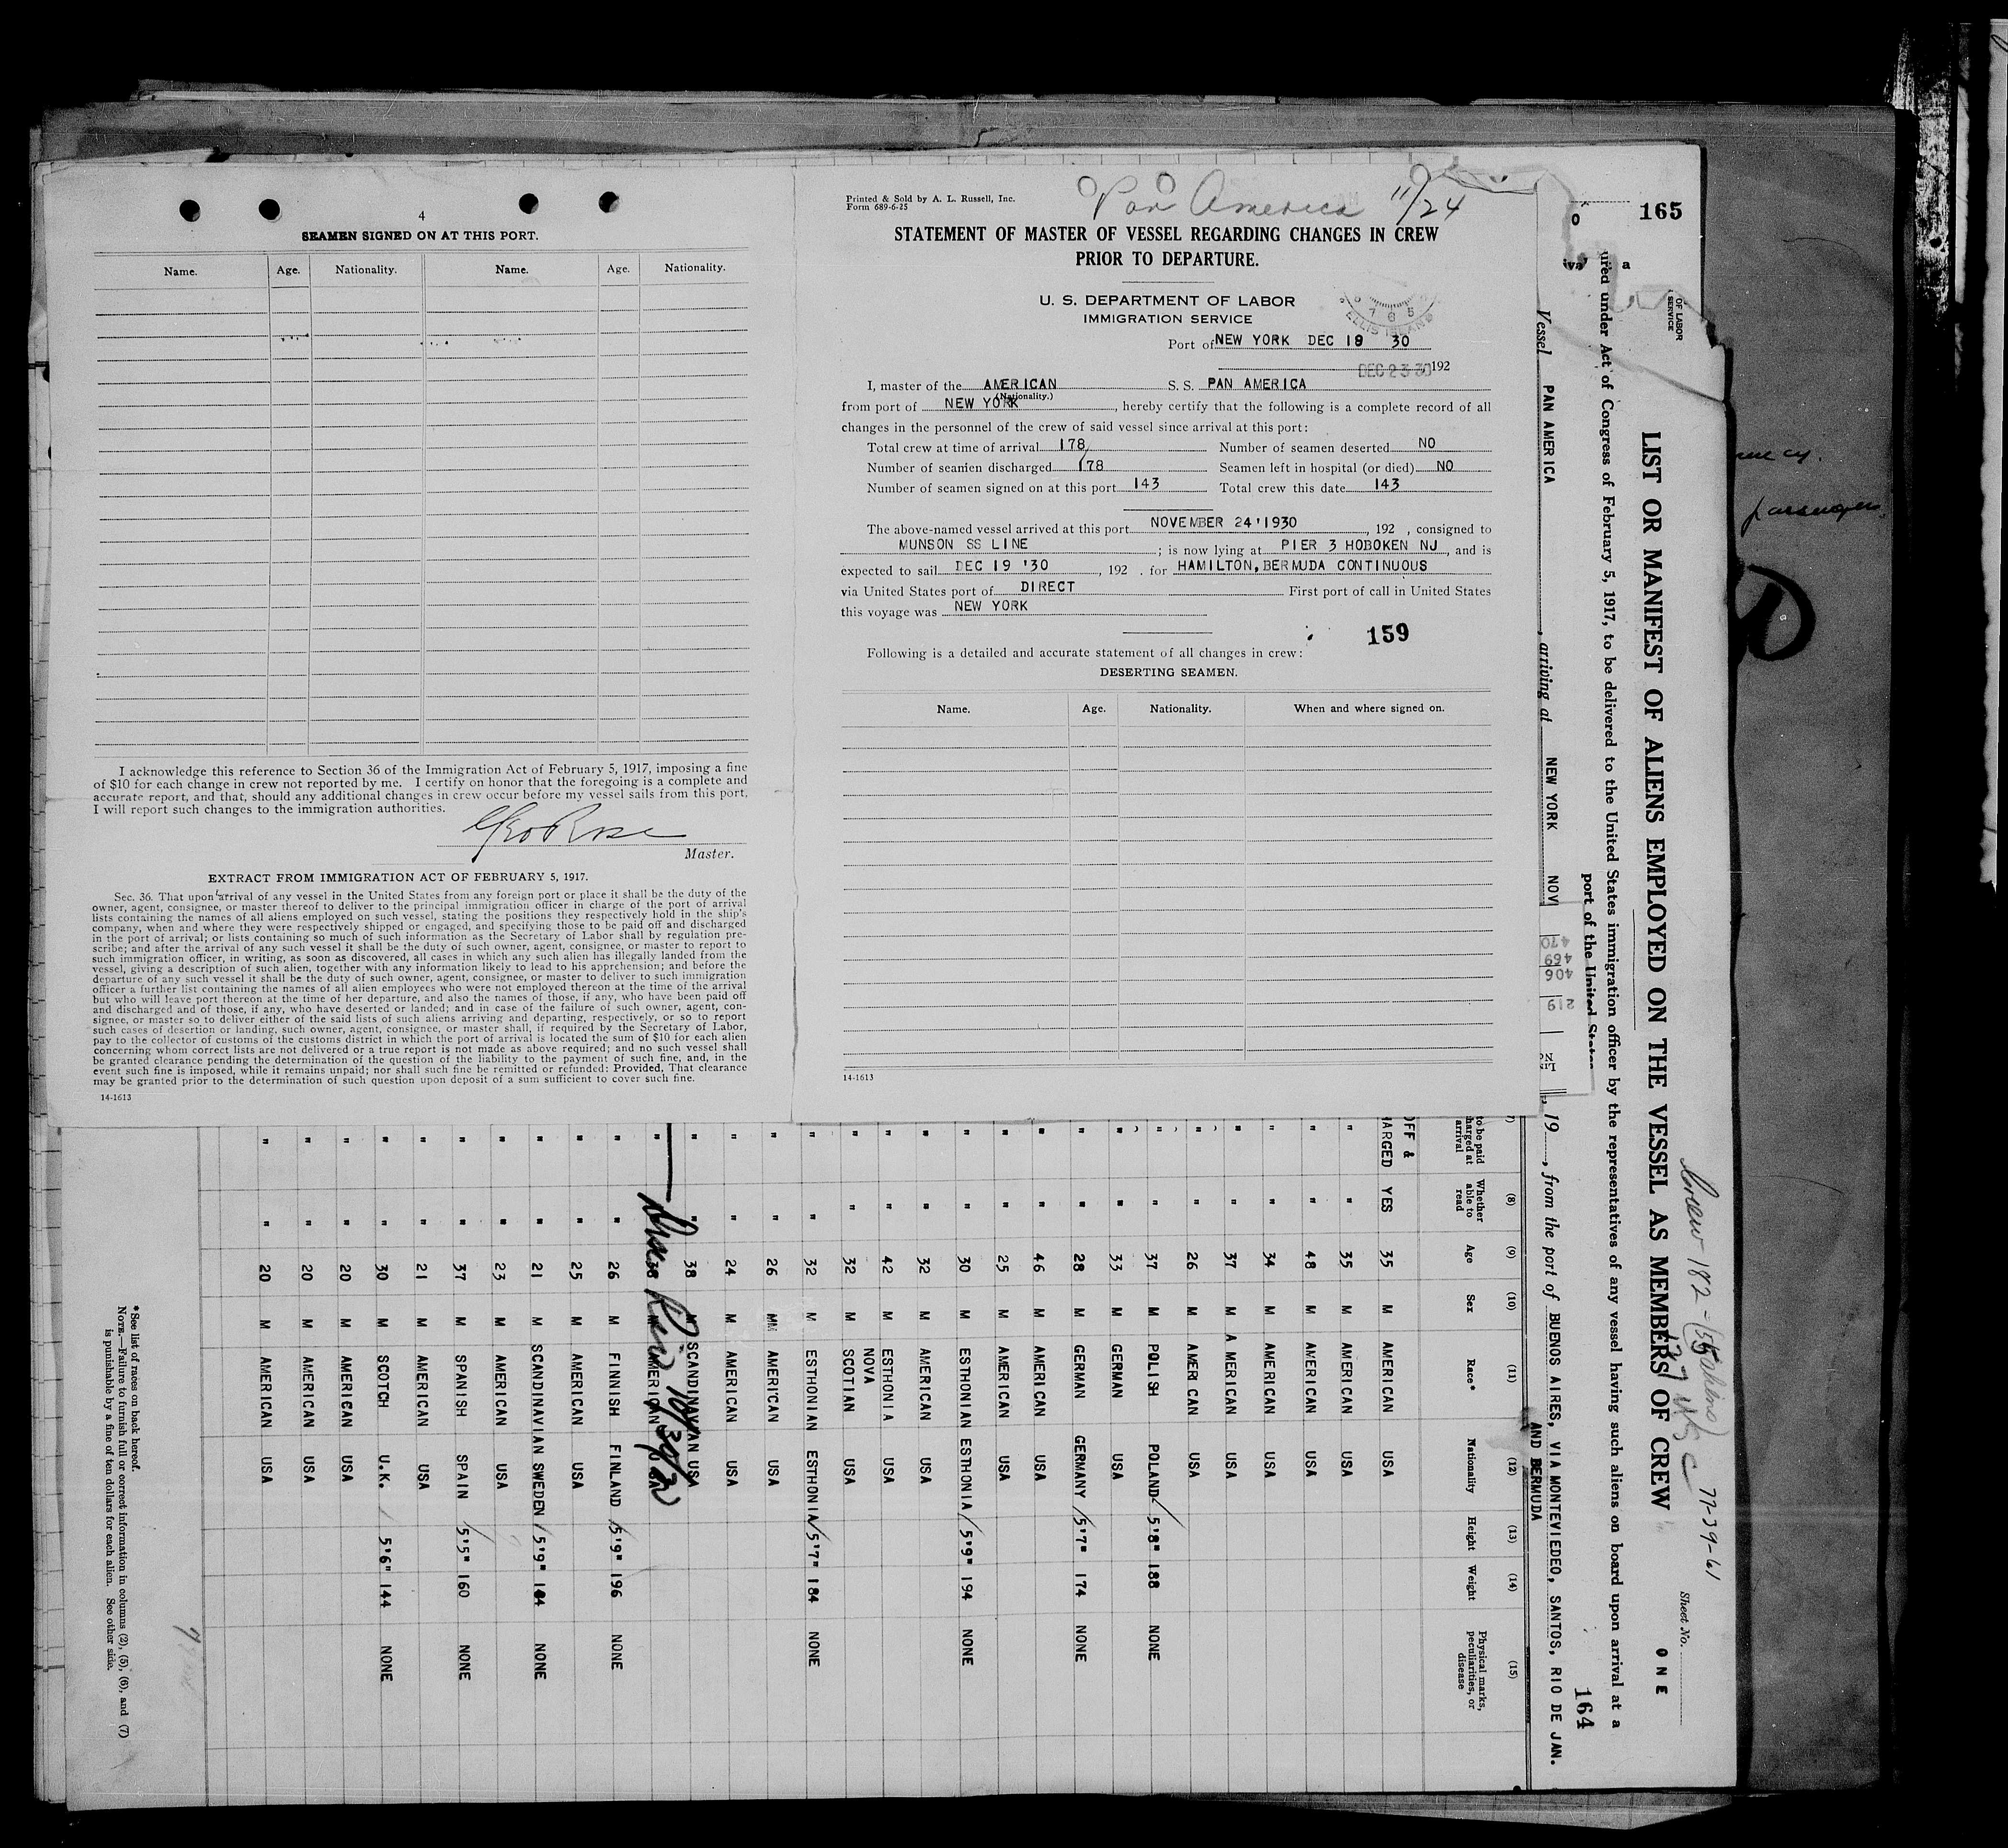 4
SEAMEN SIGNED ON AT THIS PORT.
Name. Age. Nationality. Name. Age. Nationality.
I acknowledge this reference to Section 36 of the Immigration Act of February 5, 1917, imposing a fine
of $10 for each change in crew not reported by me. I certify on honor that the foregoing is a complete and
accurate report, and that, should any additional changes in crew occur before my vessel sails from this port,
I will report such changes to the immigration authorities.
Geo Rose
Master.
EXTRACT FROM IMMIGRATION ACT OF FEBRUARY 5, 1917.
Sec. 36. That upon arrival of any vessel in the United States from any foreign port or place it shall be the duty of the
owner, agent, consignee, or master thereof to deliver to the principal immigration officer in charge of the port of arrival
lists containing the names of all aliens employed on such vessel, stating the positions they respectively hold in the ship's
company, when and where they were respectively shipped or engaged, and specifying those to be paid off and discharged
in the port of arrival; or lists containing so much of such information as the Secretary of Labor shall by regulation pre-
scribe; and after the arrival of any such vessel it shall be the duty of such owner, agent, consignee, or master to report to
such immigration officer, in writing, as soon as discovered, all cases in which any such alien has illegally landed from the
vessel, giving a description of such alien, together with any information likely to lead to his apprehension; and before the
departure of any such vessel it shall be the duty of such owner, agent, consignee, or master to deliver to such immigration
officer a further list containing the names of all alien employees who were not employed thereon at the time of the arrival
but who will leave port thereon at the time of her departure, and also the names of those, if any, who have been paid off
and discharged and of those, if any, who have deserted or landed; and in case of the failure of such owner, agent, con-
signee, or master so to deliver either of the said lists of such aliens arriving and departing, respectively, or so to report
such cases of desertion or landing, such owner, agent, consignee, or master shall, if required by the Secretary of Labor,
pay to the collector of customs of the customs district in which the port of arrival is located the sum of $10 for each alien
concerning whom correct lists are not delivered or a true report is not made as above required; and no such vessel shall
be granted clearance pending the determination of the question of the liability to the payment of such fine, and, in the
event such fine is imposed, while it remains unpaid; nor shall such fine be remitted or refunded: Provided, That clearance
may be granted prior to the determination of such question upon deposit of a sum sufficient to cover such fine.
14-1613
Printed & Sold by A. L. Russell, Inc.
Form 689-6-25
Pan America 11/24
STATEMENT OF MASTER OF VESSEL REGARDING CHANGES IN CREW
PRIOR TO DEPARTURE.
U. S. DEPARTMENT OF LABOR
IMMIGRATION SERVICE
7 6 5
ELLIS ISLAND
Port of NEW YORK DEC 19 30
DEC 23 30 192
I, master of the AMERICAN S. S. PAN AMERICA
(Nationality.)
from port of NEW YORK, hereby certify that the following is a complete record of all
changes in the personnel of the crew of said vessel since arrival at this port:
Total crew at time of arrival 178 Number of seamen deserted NO
Number of seamen discharged 178 Seamen left in hospital (or died) NO
Number of seamen signed on at this port 143 Total crew this date 143
The above-named vessel arrived at this port NOVEMBER 24'1930, 192 , consigned to
MUNSON SS LINE ; is now lying at PIER 3 HOBOKEN NJ, and is
expected to sail DEC 19 '30, 192 . for HAMILTON, BERMUDA CONTINUOUS
via United States port of DIRECT First port of call in United States
this voyage was NEW YORK
159
Following is a detailed and accurate statement of all changes in crew:
DESERTING SEAMEN.
Name. Age. Nationality. When and where signed on.
14-1613
165
OF LABOR
SERVICE
Crew 182 - 77-39-61
Sheet No. ONE
LIST OR MANIFEST OF ALIENS EMPLOYED ON THE VESSEL AS MEMBERS OF CREW
ured under Act of Congress of February 5, 1917, to be delivered to the United States immigration officer by the representatives of any vessel having such aliens on board upon arrival at a
port of the United States
164
Vessel PAN AMERICA, arriving at NEW YORK NOV , 19 , from the port of BUENOS AIRES, VIA MONTEVIEDEO, SANTOS, RIO DE JAN.
AND BERMUDA
470
469
406
219
(8) (9) (10) (11) (12) (13) (14) (15)
to be paid
harged at
arrival
Whether able to read Age Sex Race* Nationality Height Weight Physical marks, peculiarities, or disease
OFF &
ARGED YES 35 M AMERICAN USA
" " 35 M AMERICAN USA
" " 48 M AMERICAN USA
" " 34 M AMERICAN USA
" " 37 M AMERICAN USA
" " 26 M AMERICAN USA
" " 37 M POLISH POLAND 5'8" 188 NONE
" " 33 M GERMAN USA
" " 28 M GERMAN GERMANY 5'7" 174 NONE
" " 46 M AMERICAN USA
" " 25 M AMERICAN USA
" " 30 M ESTHONIAN ESTHONIA 5'9" 194 NONE
" " 32 M AMERICAN USA
" " 42 M ESTHONIA USA
" " 32 M NOVA SCOTIAN USA
" " 32 M ESTHONIAN ESTHONIA 5'7" 184 NONE
" " 26 MM AMERICAN USA
" " 24 M AMERICAN USA
" " 38 M SCANDINAVIAN USA
" 38 AMERICAN
" " 26 M FINNISH FINLAND 5'9" 196 NONE
" " 25 M AMERICAN USA
" " 21 M SCANDINAVIAN SWEDEN 5'9" 184 NONE
" " 23 M AMERICAN USA
" " 37 M SPANISH SPAIN 5'5" 160 NONE
" " 21 M AMERICAN USA
" " 30 M SCOTCH U.K. 5'6" 144 NONE
" " 20 M AMERICAN USA
" " 20 M AMERICAN USA
" " 20 M AMERICAN USA
*See list of races on back hereof.
NOTE.—Failure to furnish full or correct information in columns (2), (5), (6), and (7)
is punishable by a fine of ten dollars for each alien. See other side.
passengers